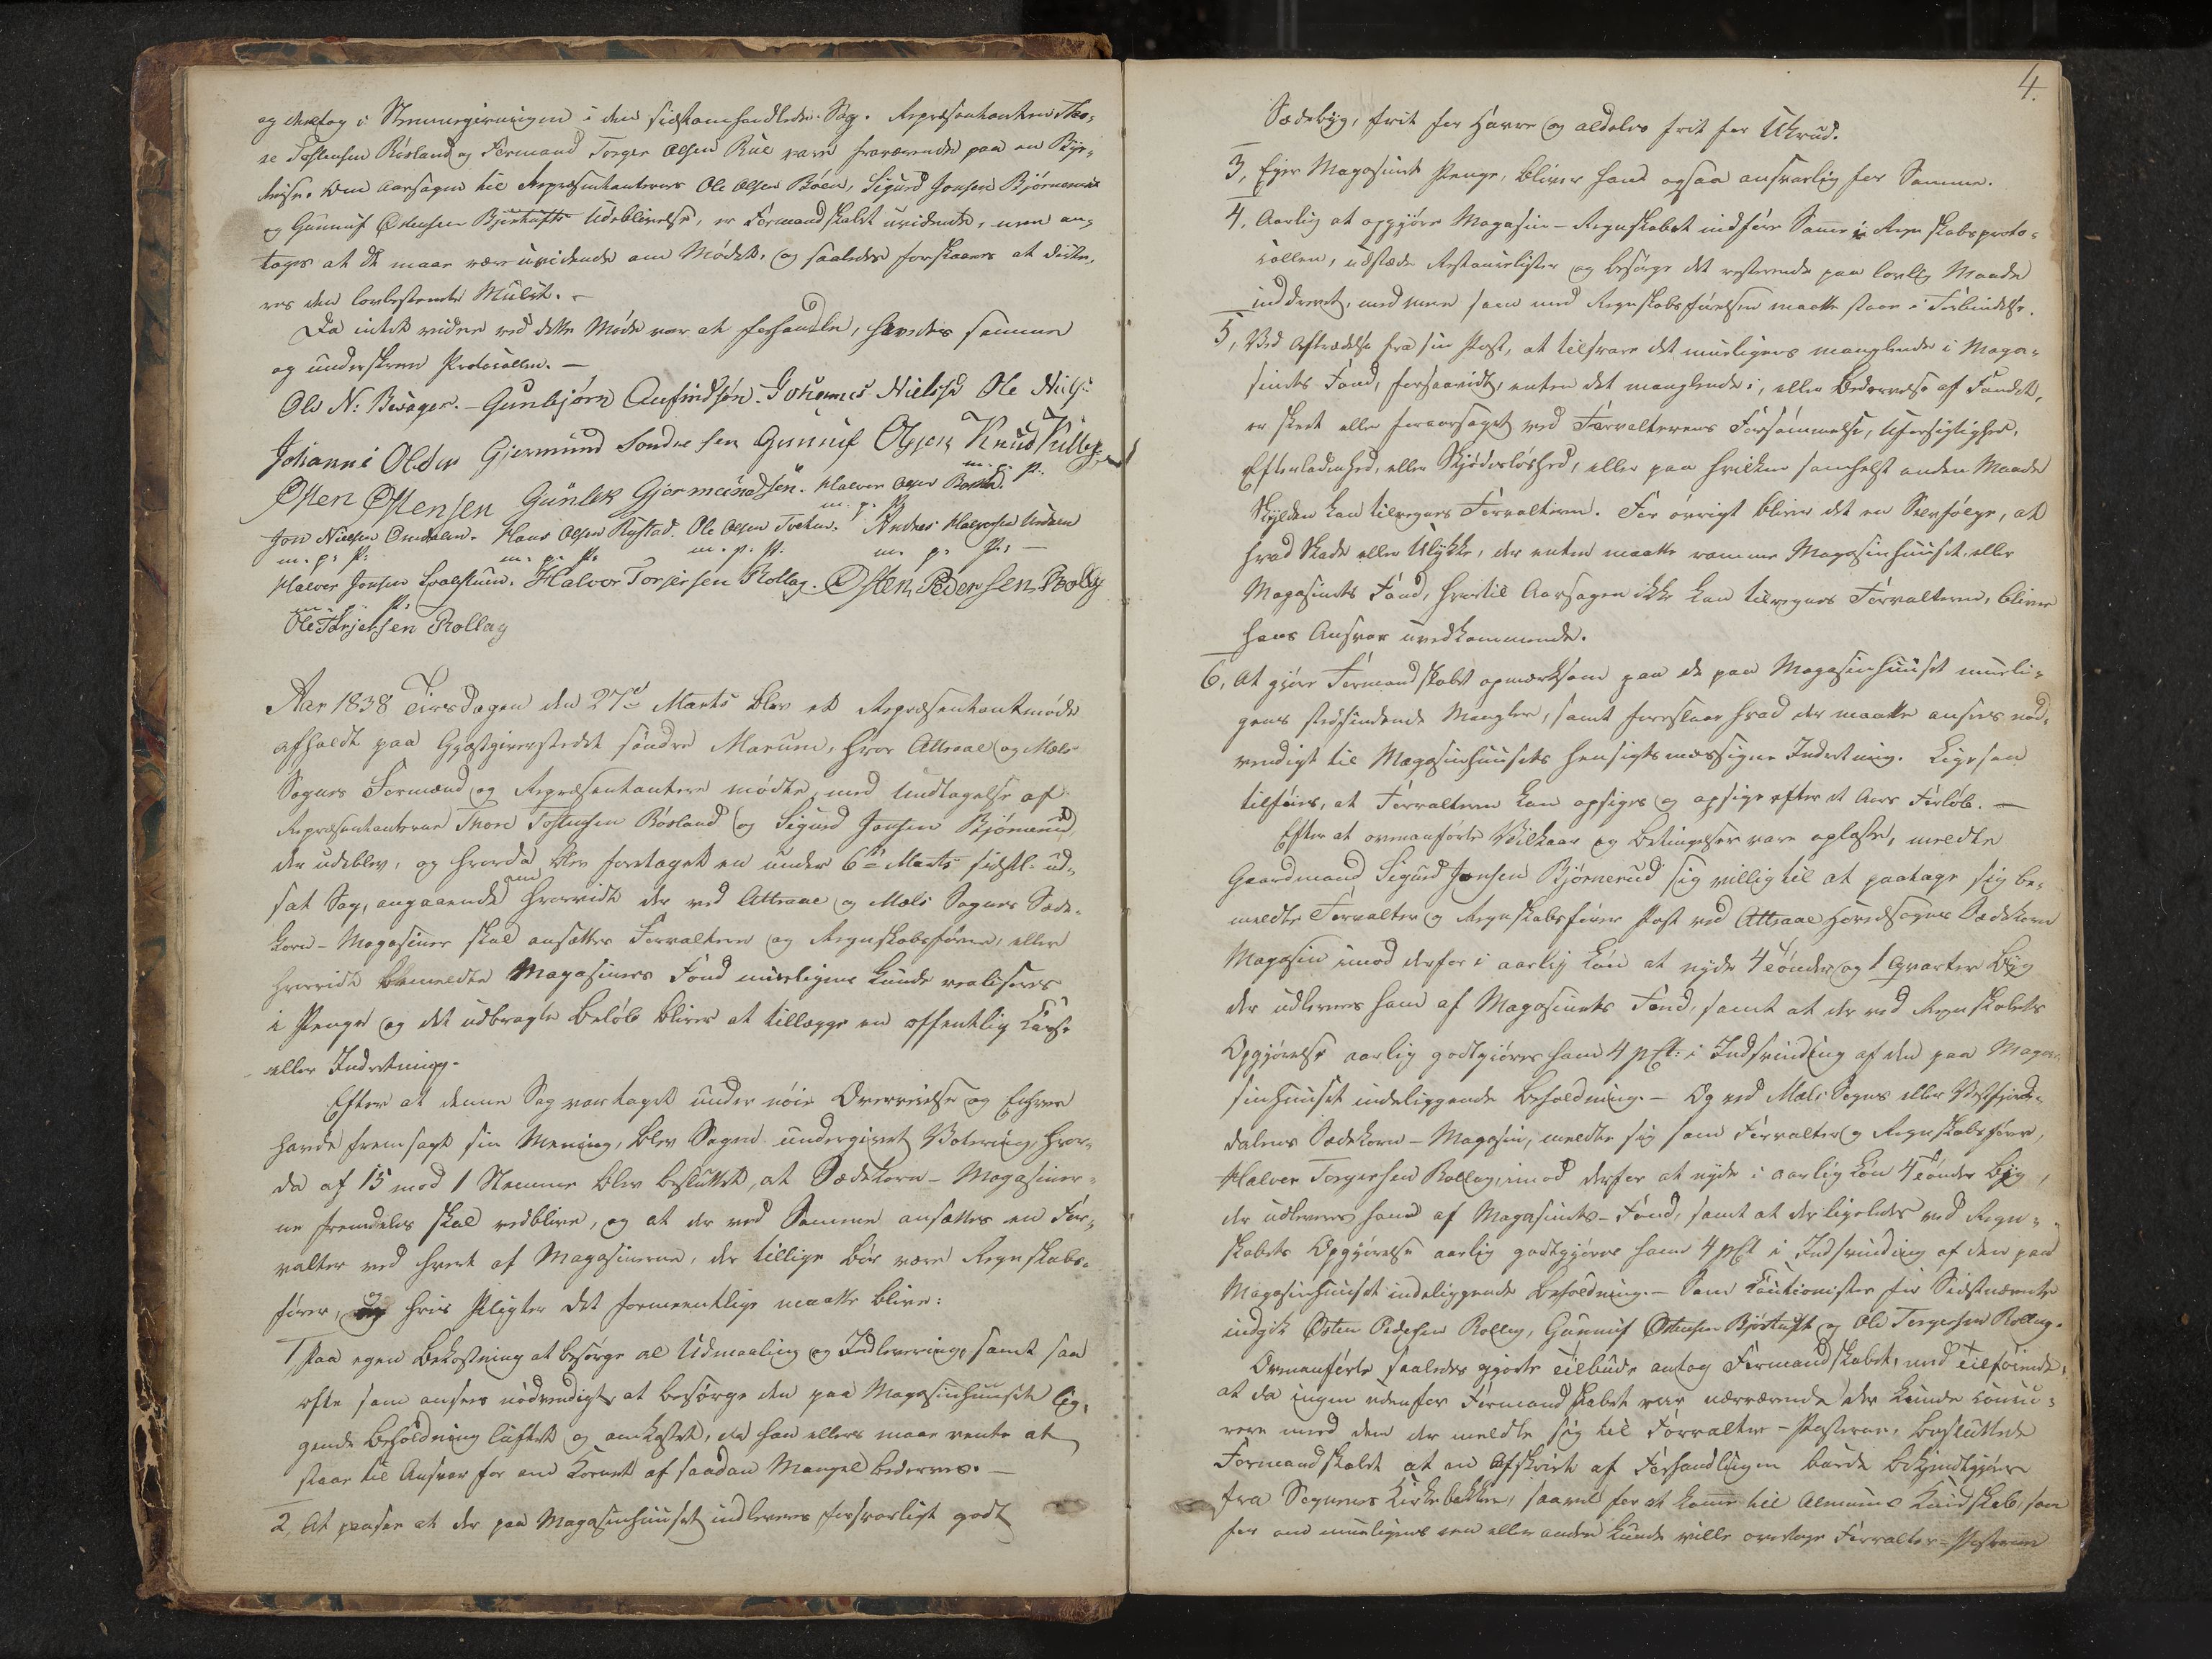 og deeltog i Stemmegivningen i den sidstomhandlede Sag. Repræsentanten Tho-
re Tostensen Rosland og Formand Torger Olsen Rue vare fraværende paa en Bye-
reise. Om Aarsagen til Repræsentanternes Ole Olsen Böen, Sigurd Jonsen Björnerud
og Gunnuf Østensen Björtuft Udeblivelse, er Formandskabet uvidende, men an-
tages at de maae være uvidende om Mødet, og saaledes forskaanes at dicte-
res den lovbestemte Mulct. –
Da intet videre ved dette Møde var at forhandle, hævedes samme
og underskrev Protocollen. –
Ole N: Bersager. – Gunbjörn Aufindsön. Johannes Nielsen Ole Niels:
Johanne Olsen Gjermund Sondresen Gunnuf Olsen Knud
m. p. P.
Østen Østensen Gunlek Gjermundsön. Halvor Olsen
m. p. P.
Jon Nielsen Ormdalen. Hans Olsen Rystad. Ole Olsen Tveten. Andres Halvorsen
m. p. P. m. p. P. m. p. P. m. p. P. –
Halvor Jonsen Halvor Torjersen Rollag. Østen Pedersen Rollag
m. p. P.
Ole Torjersen Rollag
Aar 1838 Tirsdagen den 27de Marts blev et Repræsentantmøde
afholdt paa Gjæstgiverstedet söndre Marum, hvor Attraae og Mæls
Sognes Formænd og Repræsentantere mödte, med Undtagelse af
Repræsentanterne Thore Tostensen Rosland og Sigurd Jonsen Björnerud,
der udeblev, og hvorda blev foretaget en under 6te Marts sidstl. ud-
sat Sag, angaaende om hvorvidt der ved Attraae og Mæls Sognes Sæde-
korn-Magasiner skal ansættes Forvaltere og Regnskabsförere, eller
hvorvidt bemeldte Magasiners Fond mueligens kunde realiseres
i Penge og det udbragte Belöb bliver at tillægge en offentlig Casse
eller Indretning.
Efter at denne Sag var taget under nöie Overveielse og Enhver
havde fremsagt sin Mening, blev Sagen undergivet Votering, hvor-
da af 15 mod 1 Stemme blev besluttet, at Sædekorn-Magasiner-
ne fremdeles skal vedblive, og at der ved Samme ansættes en For-
valter ved hvert af Magasinerne, der tillige bör være Regnskabs-
förer, og hvis Pligter det formeentlige maatte blive:
1, Paa egen Bekostning at besörge al Udmaaling og Indlevering, samt saa
ofte som ansees nödvendigt, at besörge den paa Magasinhuuset lig-
gende Beholdning luftet og omkastet, da han ellers maae vente at
staae til Ansvar for om Kornet af saadan Mangel bederves. –
2, At paasee at der paa Magasinhuuset indleveres forsvarligt godt
4.
Sædebyg, frit for Havre og aldeles frit for Ukrud.
3, Eier Magasinet Penge, bliver han ogsaa ansvarlig for Samme.
4, Aarlig at opgjöre Magasin-Regnskabet indföre Samme i Regnskabsproto-
collen, udstæde Restancelister og besörge det resterende paa lovlig Maade
inddrevet, med mere som med Regnskabsförelsen maatte staae i Forbindelse.
5, Ved Aftrædelse fra sin Post, at tilsvare det mueligens manglende i Maga-
sinets Fond, forsaavidt, enten det manglende i, eller Bedærvelse af Fondet,
er skeet eller foraarsaget ved Forvalterens Forsömmelse, Uforsigtighed,
Efterladenhed, eller Skjödeslöshed, eller paa hvilken somhelst anden Maade
Skylden kan tilregnes Forvalteren. For övrigt bliver det en Selvfölge, at
hvad Skade eller Ulykke, der enten maatte ramme Magasinhuuset, eller
Magasinets Fond, hvortil Aarsagen ikke kan tilregnes Forvalteren, bliver
hans Ansvar uvedkommende.
6, At gjöre Formandskabet opmærksom paa de paa Magasinhuuset mueli-
gens stedfindende Mangler, samt foreslaae hvad der maatte ansees nöd-
vendigt til Magasinhuusets hensigtsmæssigere Indretning. Ligesom
tilföies, at Forvalteren kan opsiges og opsige efter et Aars Forlöb. –
Efter at ovenanförte Vilkaar og Betingelser vare oplæste, meldte
Gaardmand Sigurd Jonsen Björnerud sig villig til at paatage sig be-
meldte Forvalter og Regnskabsförer Post ved Attraae Hovedsogns Sædekorn
Magasin imod derfor i aarlig Lön at nyde 4 Tönder og 1 Qvarter Byg
der udleveres ham af Magasinets Fond, samt at der ved Regnskabets
Opgjörelse aarlig godtgjöres ham 4 pCt: i Indsvinding af den paa Maga-
sinhuuset indeliggende Beholdning. – Og ved Mæls Sogns eller Vestfjord-
dalens Sædekorn-Magasin, meldte sig som Forvalter og Regnskabsförer,
Halvor Torgersen Rollag, imod derfor at nyde i aarlig Lön 4 Tönder Byg,
der udleveres ham af Magasinets-Fond, samt at der ligeledes ved Regn-
skabets Opgjörelse aarlig godtgjöres ham 4 pCt i Indsvinding af den paa
Magasinhuuset indeliggende Beholdning. – Som Cautionister for Sidstnævnte
indgik Østen Pedersen Rollag, Gunnuf Østensen Björtuft og Ole Torgersen Rollag.
Ovenanförte saaledes gjorte Tilbude antog Formandskabet, med Tilföiende,
at da ingen udenfor Formandskabet var nærværende der kunde concu-
rere med dem der meldte sig til Forvalter-Posterne, besluttede
Formandskabet at en Afskrivt af Forhandlingen burde bekjendtgjöres
fra Sognenes Kirkebakker, saavel for at komme til Almeens Kundskab, som
for om mueligens een eller anden kunde ville overtage Forvalter-Posterne